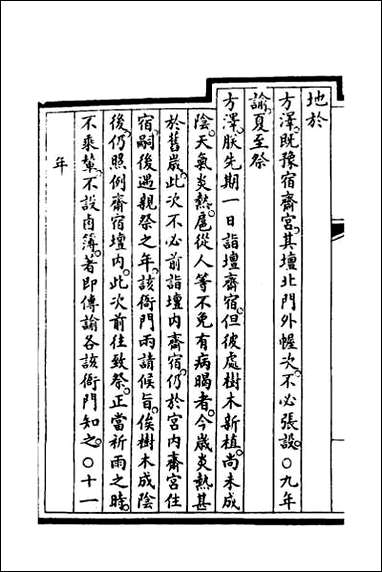 地於
方澤既豫宿齋宮其壇北門外幄次不必張設〇九年
諭夏至祭
方澤朕先期一日詣壇齋宿但彼處樹木新植尚未成
陰天氣炎熱扈從人等不免有病暍者今歲炎熱甚
於舊歲此次不必前詣壇內齋宿仍於宮內齋宮住
宿嗣後遇親祭之年該衙門兩請候旨俟樹木成陰
後仍照例齋宿壇內此次前往致祭正當祈雨之時
不乘輦不設鹵簿著即傳諭各該衙門知之〇十一
年